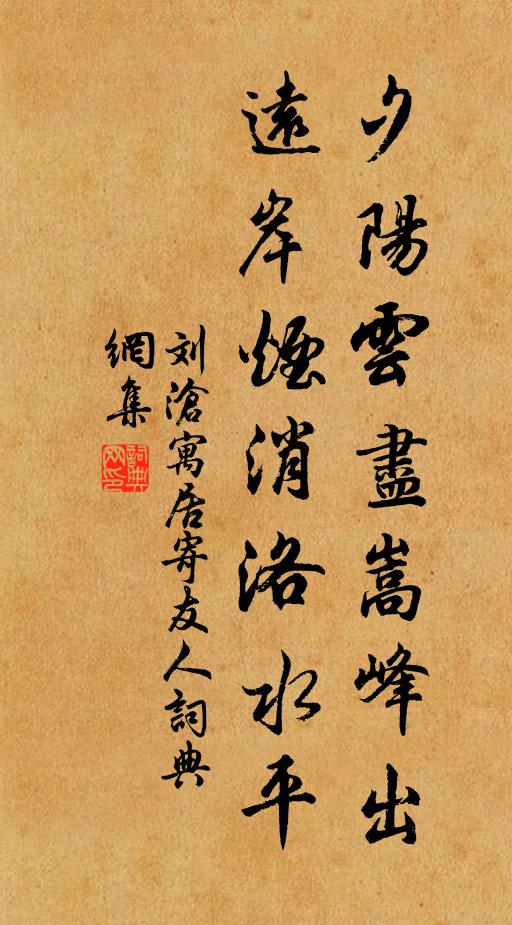 夕陽雲盡嵩峰出
遠岸煙消洛水平
刘滄寓居寄友人詞典
網集
詞典
网印